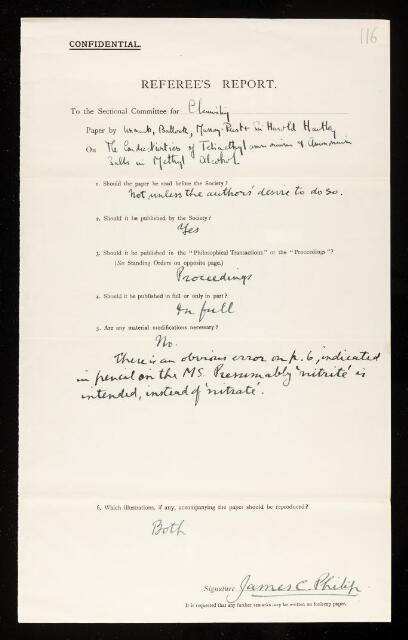 116
CONFIDENTIAL.
REFEREE'S REPORT.
To the Sectional Committee for Chemistry
Paper by Unmack, Bullock, Murray-Rust & Sir Harold Hartley
On The Conductivities of Tetraethyl ammonium & Ammonium
Salts in Methyl Alcohol
1. Should the paper be read before the Society?
Not unless the authors' desire to do so.
2. Should it be published by the Society?
Yes
3. Should it be published in the "Philosophical Transactions" or the "Proceedings"?
(See Standing Orders on opposite page.)
Proceedings
4. Should it be published in full or only in part?
In full
5. Are any material modifications necessary?
No.
There is an obvious error on p. 6, indicated
in pencil on the MS. Pressumably 'nitrite' is
intended, instead of 'nitrate'.
6. Which illustrations, if any, accompanying the paper should be reproduced?
Both
Signature James C. Philip.
It is requested that any further remarks may be written on foolscap paper.